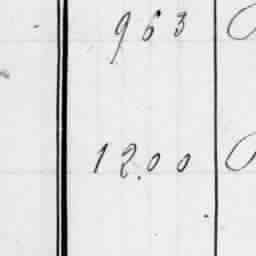 963
12.00